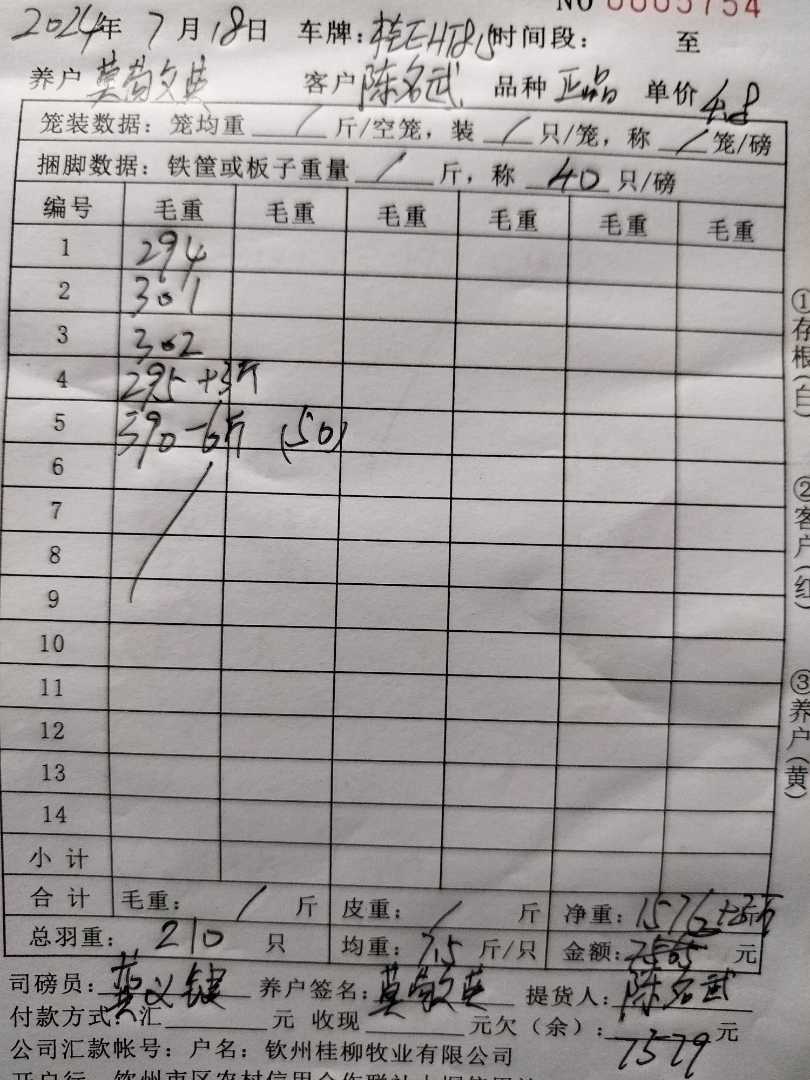 NO 0005754
2024年 7月18日 车牌:桂EHT815时间段: 至
养户 莫菊文英 客户 陈名武 品种 正品 单价 4.8
笼装数据:笼均重 / 斤/空笼,装 / 只/笼,称 / 笼/磅
捆脚数据:铁筐或板子重量 / 斤,称 40 只/磅
编号 毛重 毛重 毛重 毛重 毛重 毛重
1 294
2 301
3 302
4 295+3斤
5 390-6斤 (50)
6
7
8
9
10
11
12
13
14
小计
合计 毛重: / 斤 皮重: / 斤 净重:1576+3斤
总羽重: 210 只 均重:7.5 斤/只 金额:7565 元
司磅员: 养户签名:莫菊文英 提货人:陈名武
付款方式:汇 元 收现 元欠(余): 7579 元
公司汇款帐号:户名:钦州桂柳牧业有限公司
开户行:钦州市区农村信用合作联社
①存根(白)
②客户(红)
③养户(黄)